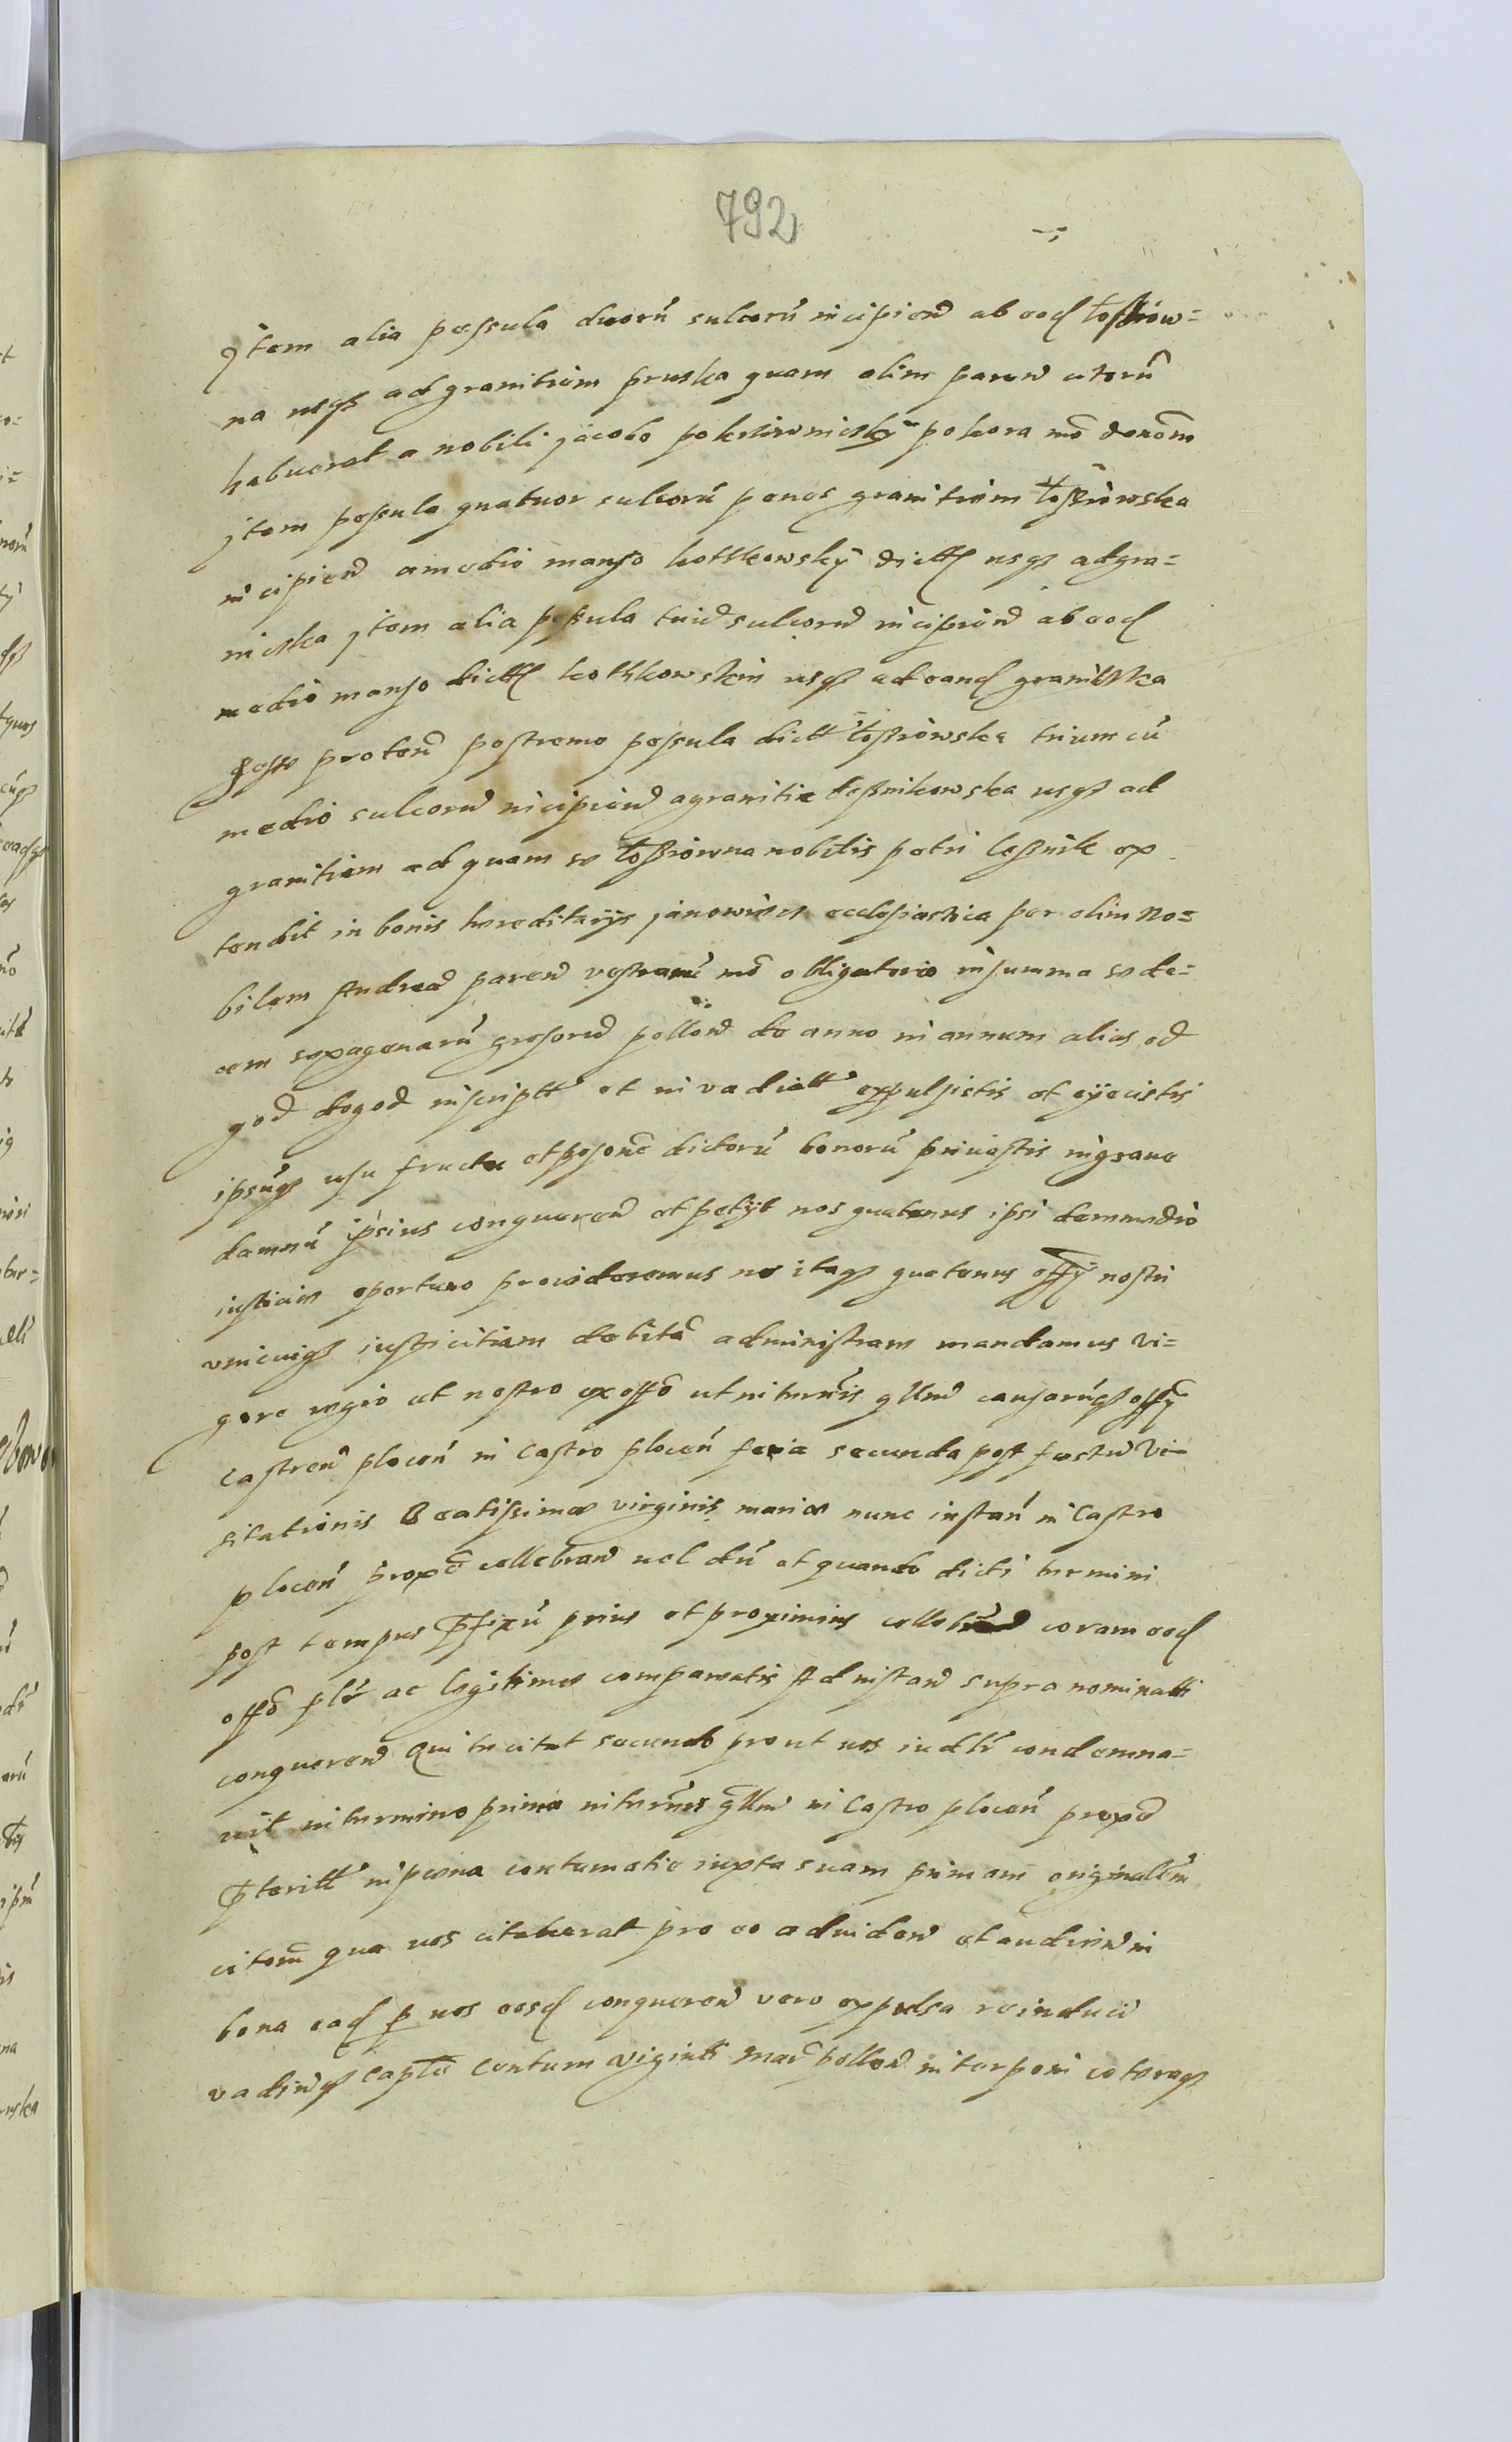 792
Jtem alia pessula duorũ sulcorũ incipieñ ab eod Łossiow=
na usq3 ad granitiem pruska quam olim pareñ citorũ
habuerat a nobili jacobo pokrziwniczky pokora mõ
jtem pessula quatuor sulcorũ penes granitiem Łossiowska
incipieñ a medio manso kothkowsky dictt usq3 ad gra=
niczka jtem alia pessula triũ sulcorũ incipieñ ab eod
medio manso dictt kothkowskim usq3 ad eand graniczka
proteñ postremo pessula dictt Łossiowska trium cũ
medio sulcorũ incipieñ a granitie Lessnikowska usq3 ad
granitiem ad quam se Łossiowna nobilis petri Lessnik ex
tendit in bonis hereditarijs janowiecz ecclesiastica per olim No=
bilem Andreã pareñ vestrum mõ obligatorio in summa sede=
cem sexagenarũ grosorũ polloñ de anno in annum alias od
god do god inscriptt et invadiatt expulsistis et eÿecistis
ipsũq3 usu fructu et posone dictorũ bonorũ privastis in grave
damnũ ipsius conquereñ et petÿt nos quatenus ipsi de remedio
iusticie oportuno provideremus nos itaq3 quatenus offÿ nostri
unicuiq3 iusticitiam debitã administrare mandamus vi=
gore regio et nostro ex offõ ut in terminis gllnd causarũq3 offÿ
Castreñ ploceñ in Castro ploceñ feria secunda post festũ Vi=
sitationis Beatissimae virginis mariae nunc instañ in Castro
ploceñ proxõ cellebrañ uel dũ et quando dicti termini
post tempus pfixũ prius et proximius cellebrañ coram eod
offõ plr ac legitime compareatis Ad instañ supra nominatti
conquereñ Qui te citat secundo prout uos iudlr condemna=
uit in termino primo in terminis gllnd in Castro ploceñ proxõ
pteritt in poena contumatie iuxta suam primam originalem
citoñ qua uos citaverat pro eo ad uideñ et audieñ in
bona ead p uos eosd conquereñ vero expulsa reinduci
vadiuq3 capte Centum viginti Mar polloñ interponi coteraq3